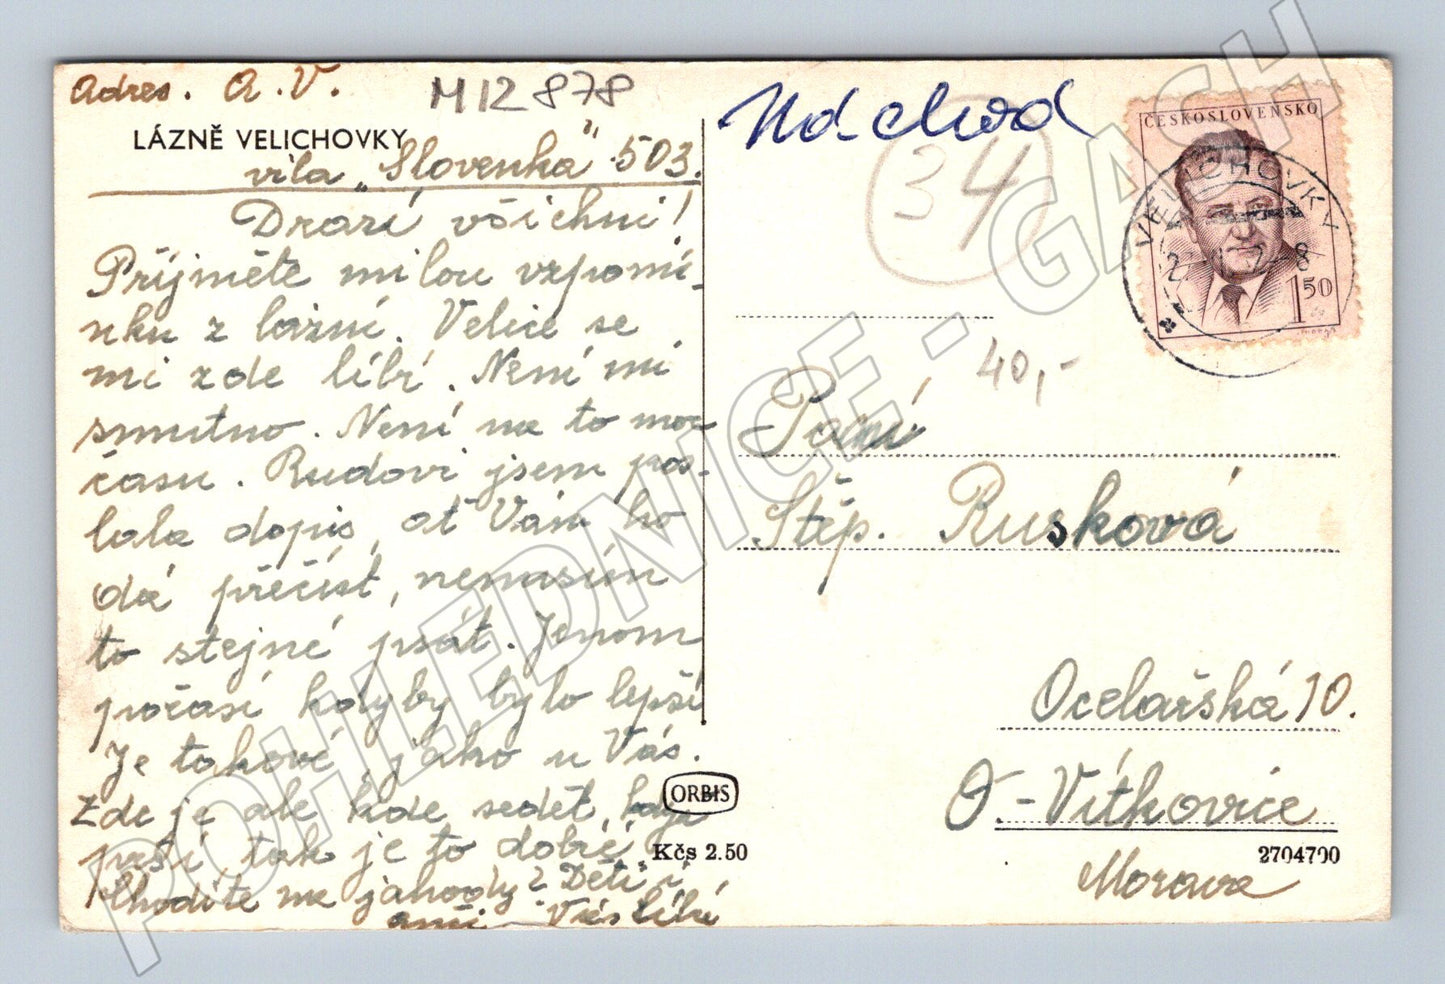 Adres. A. V.
M12 878
LÁZNĚ VELICHOVKY
vila „Slovenka" 503.
Drazí všichni!
Přijměte milou vzpomí-
nku z lázní. Velice se
mi zde líbí. Není mi
smutno. Není na to moc
času. Rudovi jsem pos-
lala dopis, ať Vám ho
dá přečíst, nemusím
to stejné psát. Jenom
počasí kdyby bylo lepší
Je takové jako u Vás.
Zde je ale kde sedět, když
prší, tak je to dobré.
Chodíte na jahody? Děti i
Vás líbí
Náchod
34
40,-
ČESKOSLOVENSKO
1 50
VELICHOVKY
Paní
Štěp. Rusková
Ocelařská 10.
O.-Vítkovice
Morava
ORBIS
Kčs 2.50
2704700
POHLEDNICE - GACH